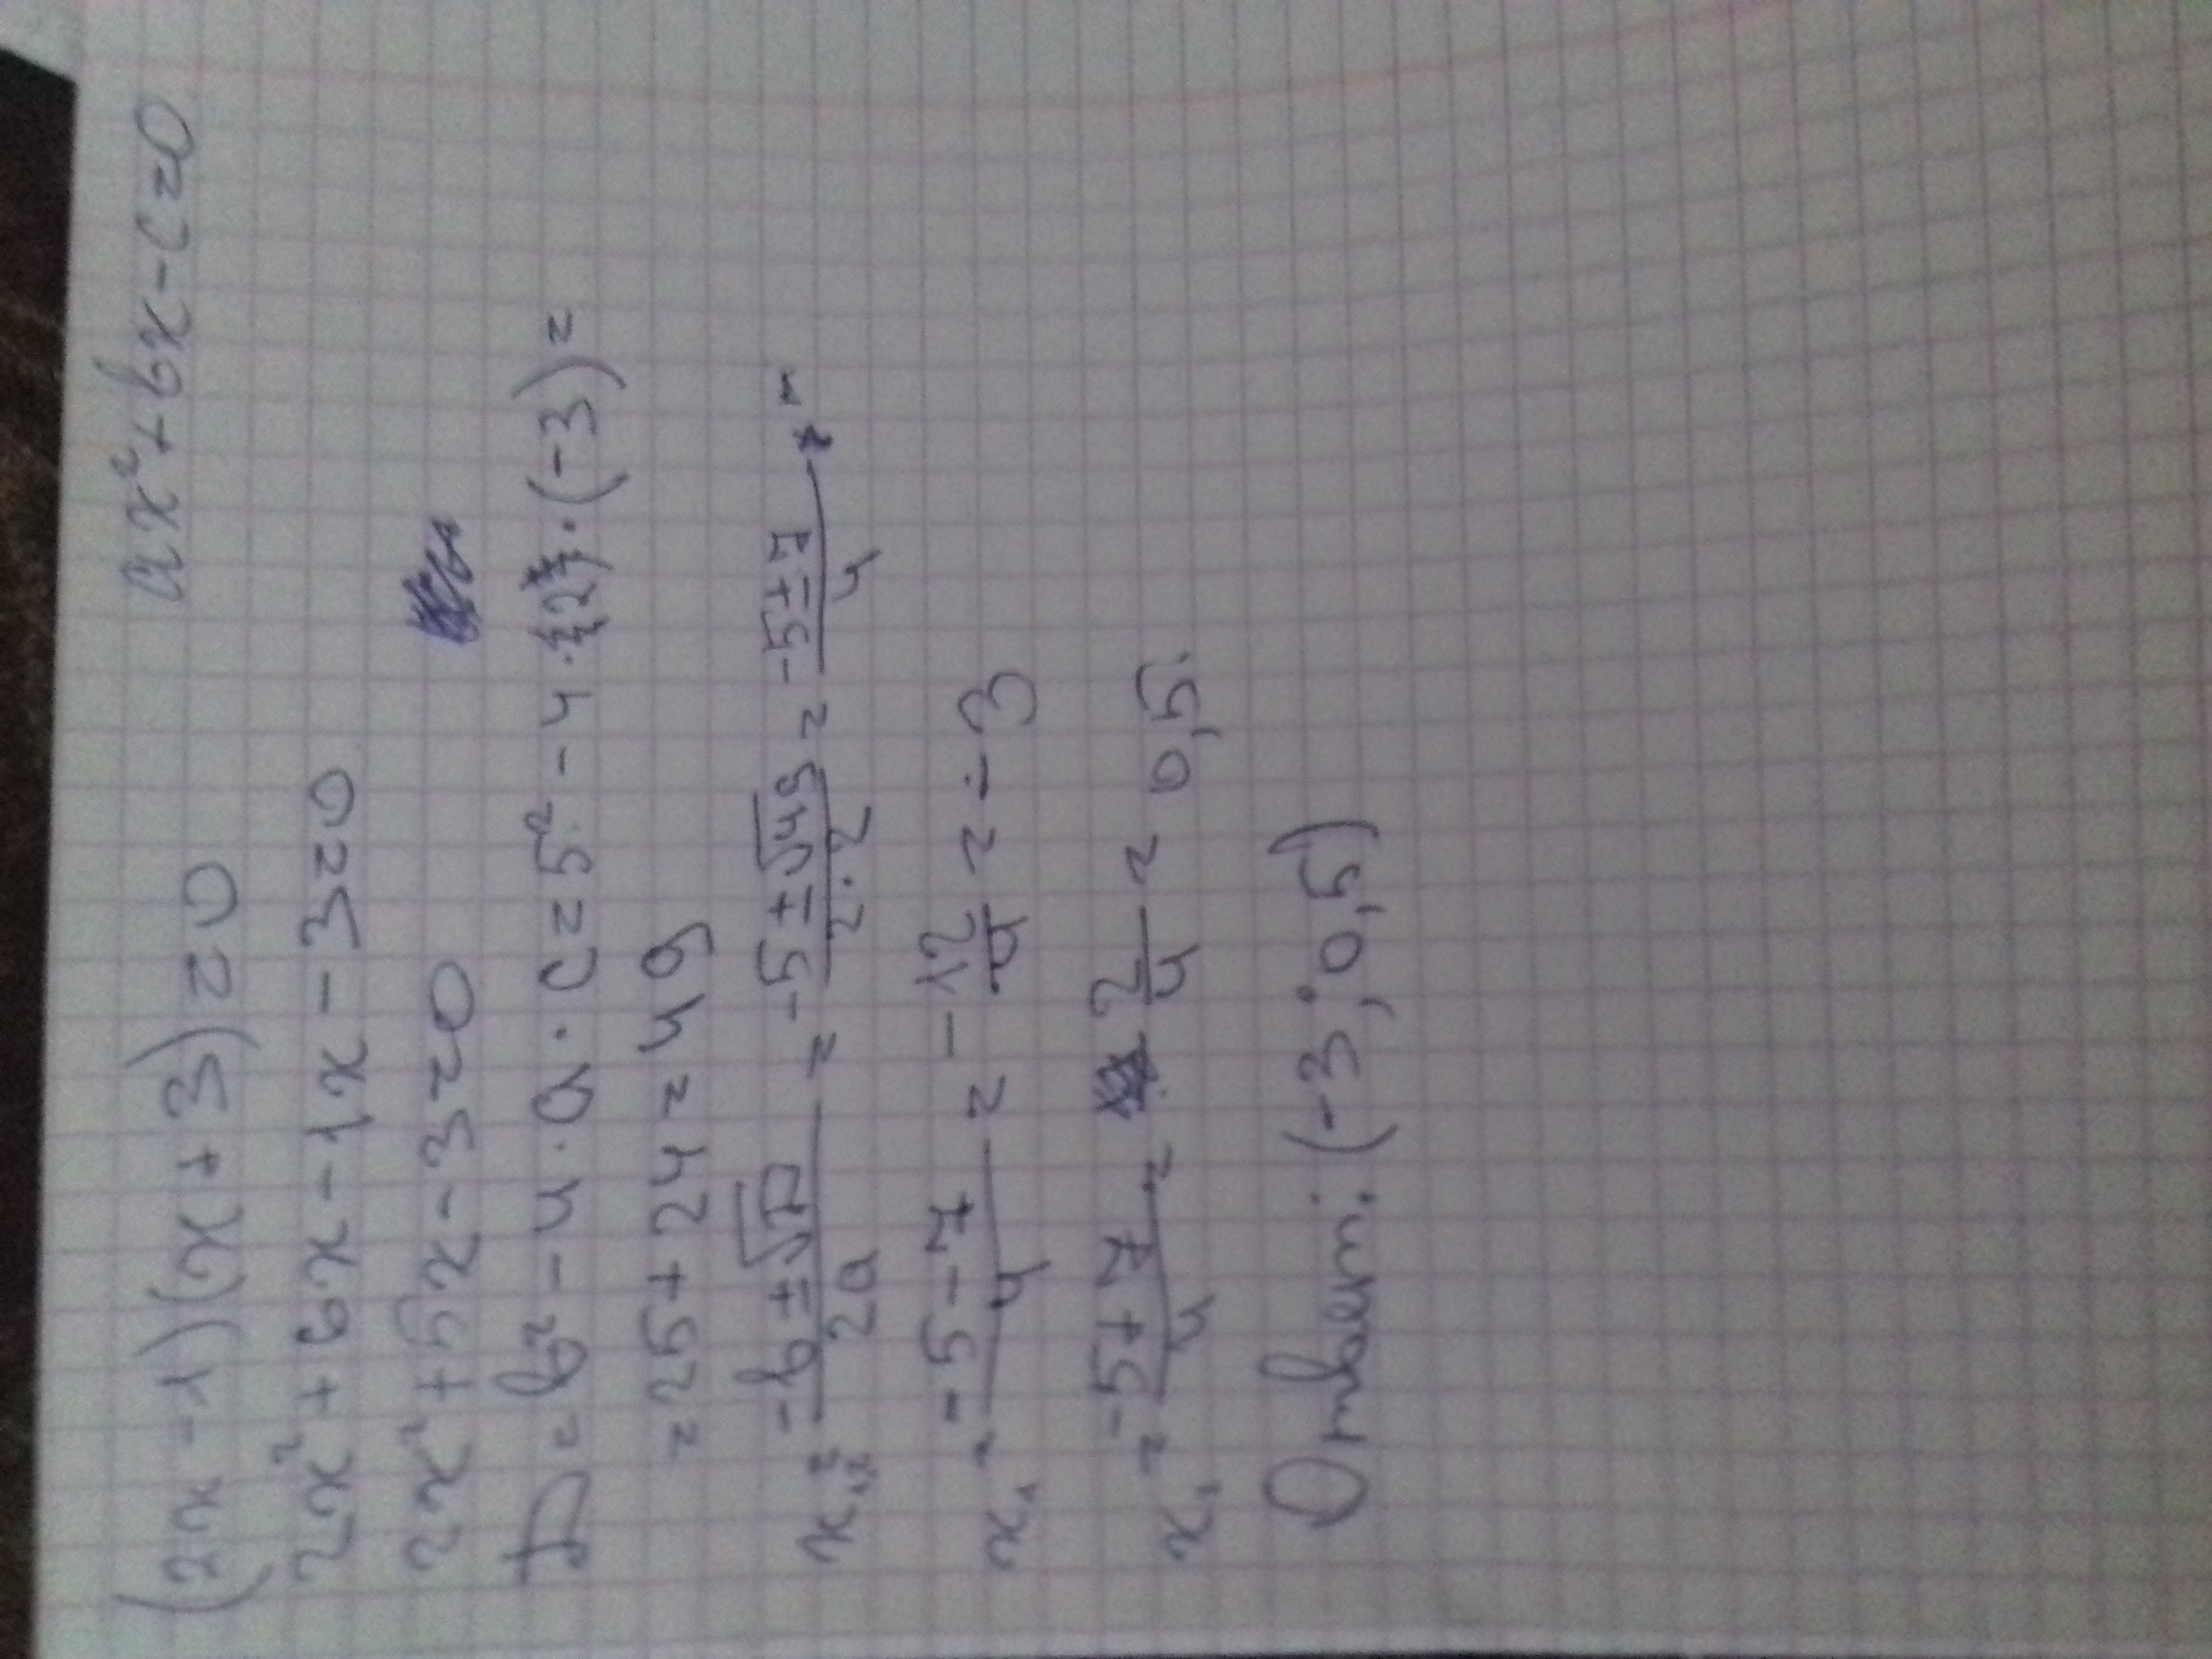 (2x-1)(x+3)=0 ax²+bx-c=0
2x²+6x-1x-3=0
2x²+5x-3=0
D=b²-4·a·c=5²-4·2·(-3)=
=25+24=49
x₁,₂=(-b±√D)/2a=(-5±√49)/2·2=(-5±7)/4=
x₁=(-5-7)/4=-12/4=-3
x₁=(-5+7)/4=2/4=0,5.
Ответ: (-3; 0,5)